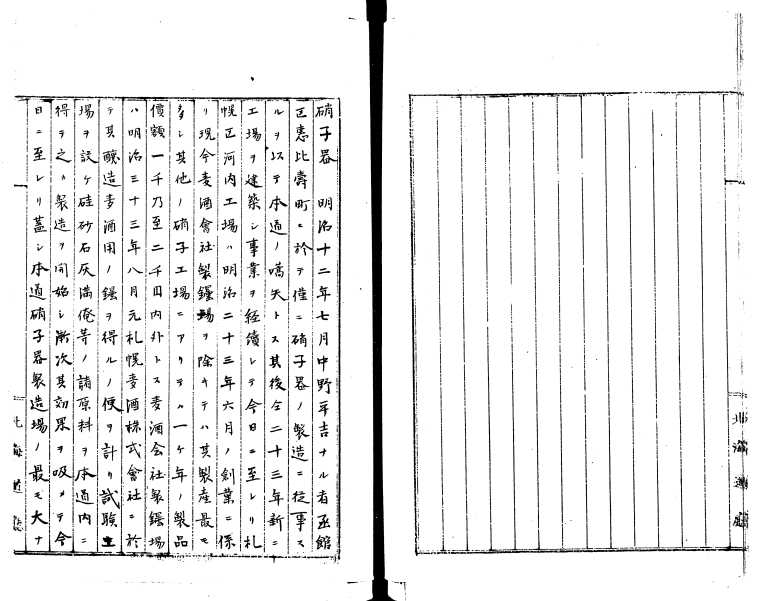 硝子器　明治十二年七月中野平吉ナル者函館
区恵比壽町ニ於テ僅ニ硝子器ノ製造ニ従事ス
ルヲ以テ本道ノ嚆矢トス其後仝二十三年新ニ
工場ヲ建築シ事業ヲ経續シテ今日ニ至レリ札
幌区河内工場ハ明治二十三年六月ノ創業ニ係
リ現今麦酒會社製壜場ヲ除キテハ其製産最モ
多シ其他ノ硝子工場ニアリテハ一ケ年ノ製品
價額一千乃至二千円内外トス麦酒会社製壜場
ハ明治三十三年八月元札幌麦酒株式會社ニ於
テ其醸造麦酒用ノ壜ヲ得ルノ便ヲ計リ試験工
場ヲ設ケ硅砂石灰満俺等ノ諸原料ヲ本道内ニ
得テ之ヽ製造ヲ開始シ漸次其効果ヲ吸メテ今
日ニ至レリ蓋シ本道硝子器製造場ノ最モ大ナ
北海道廳
北海道廳